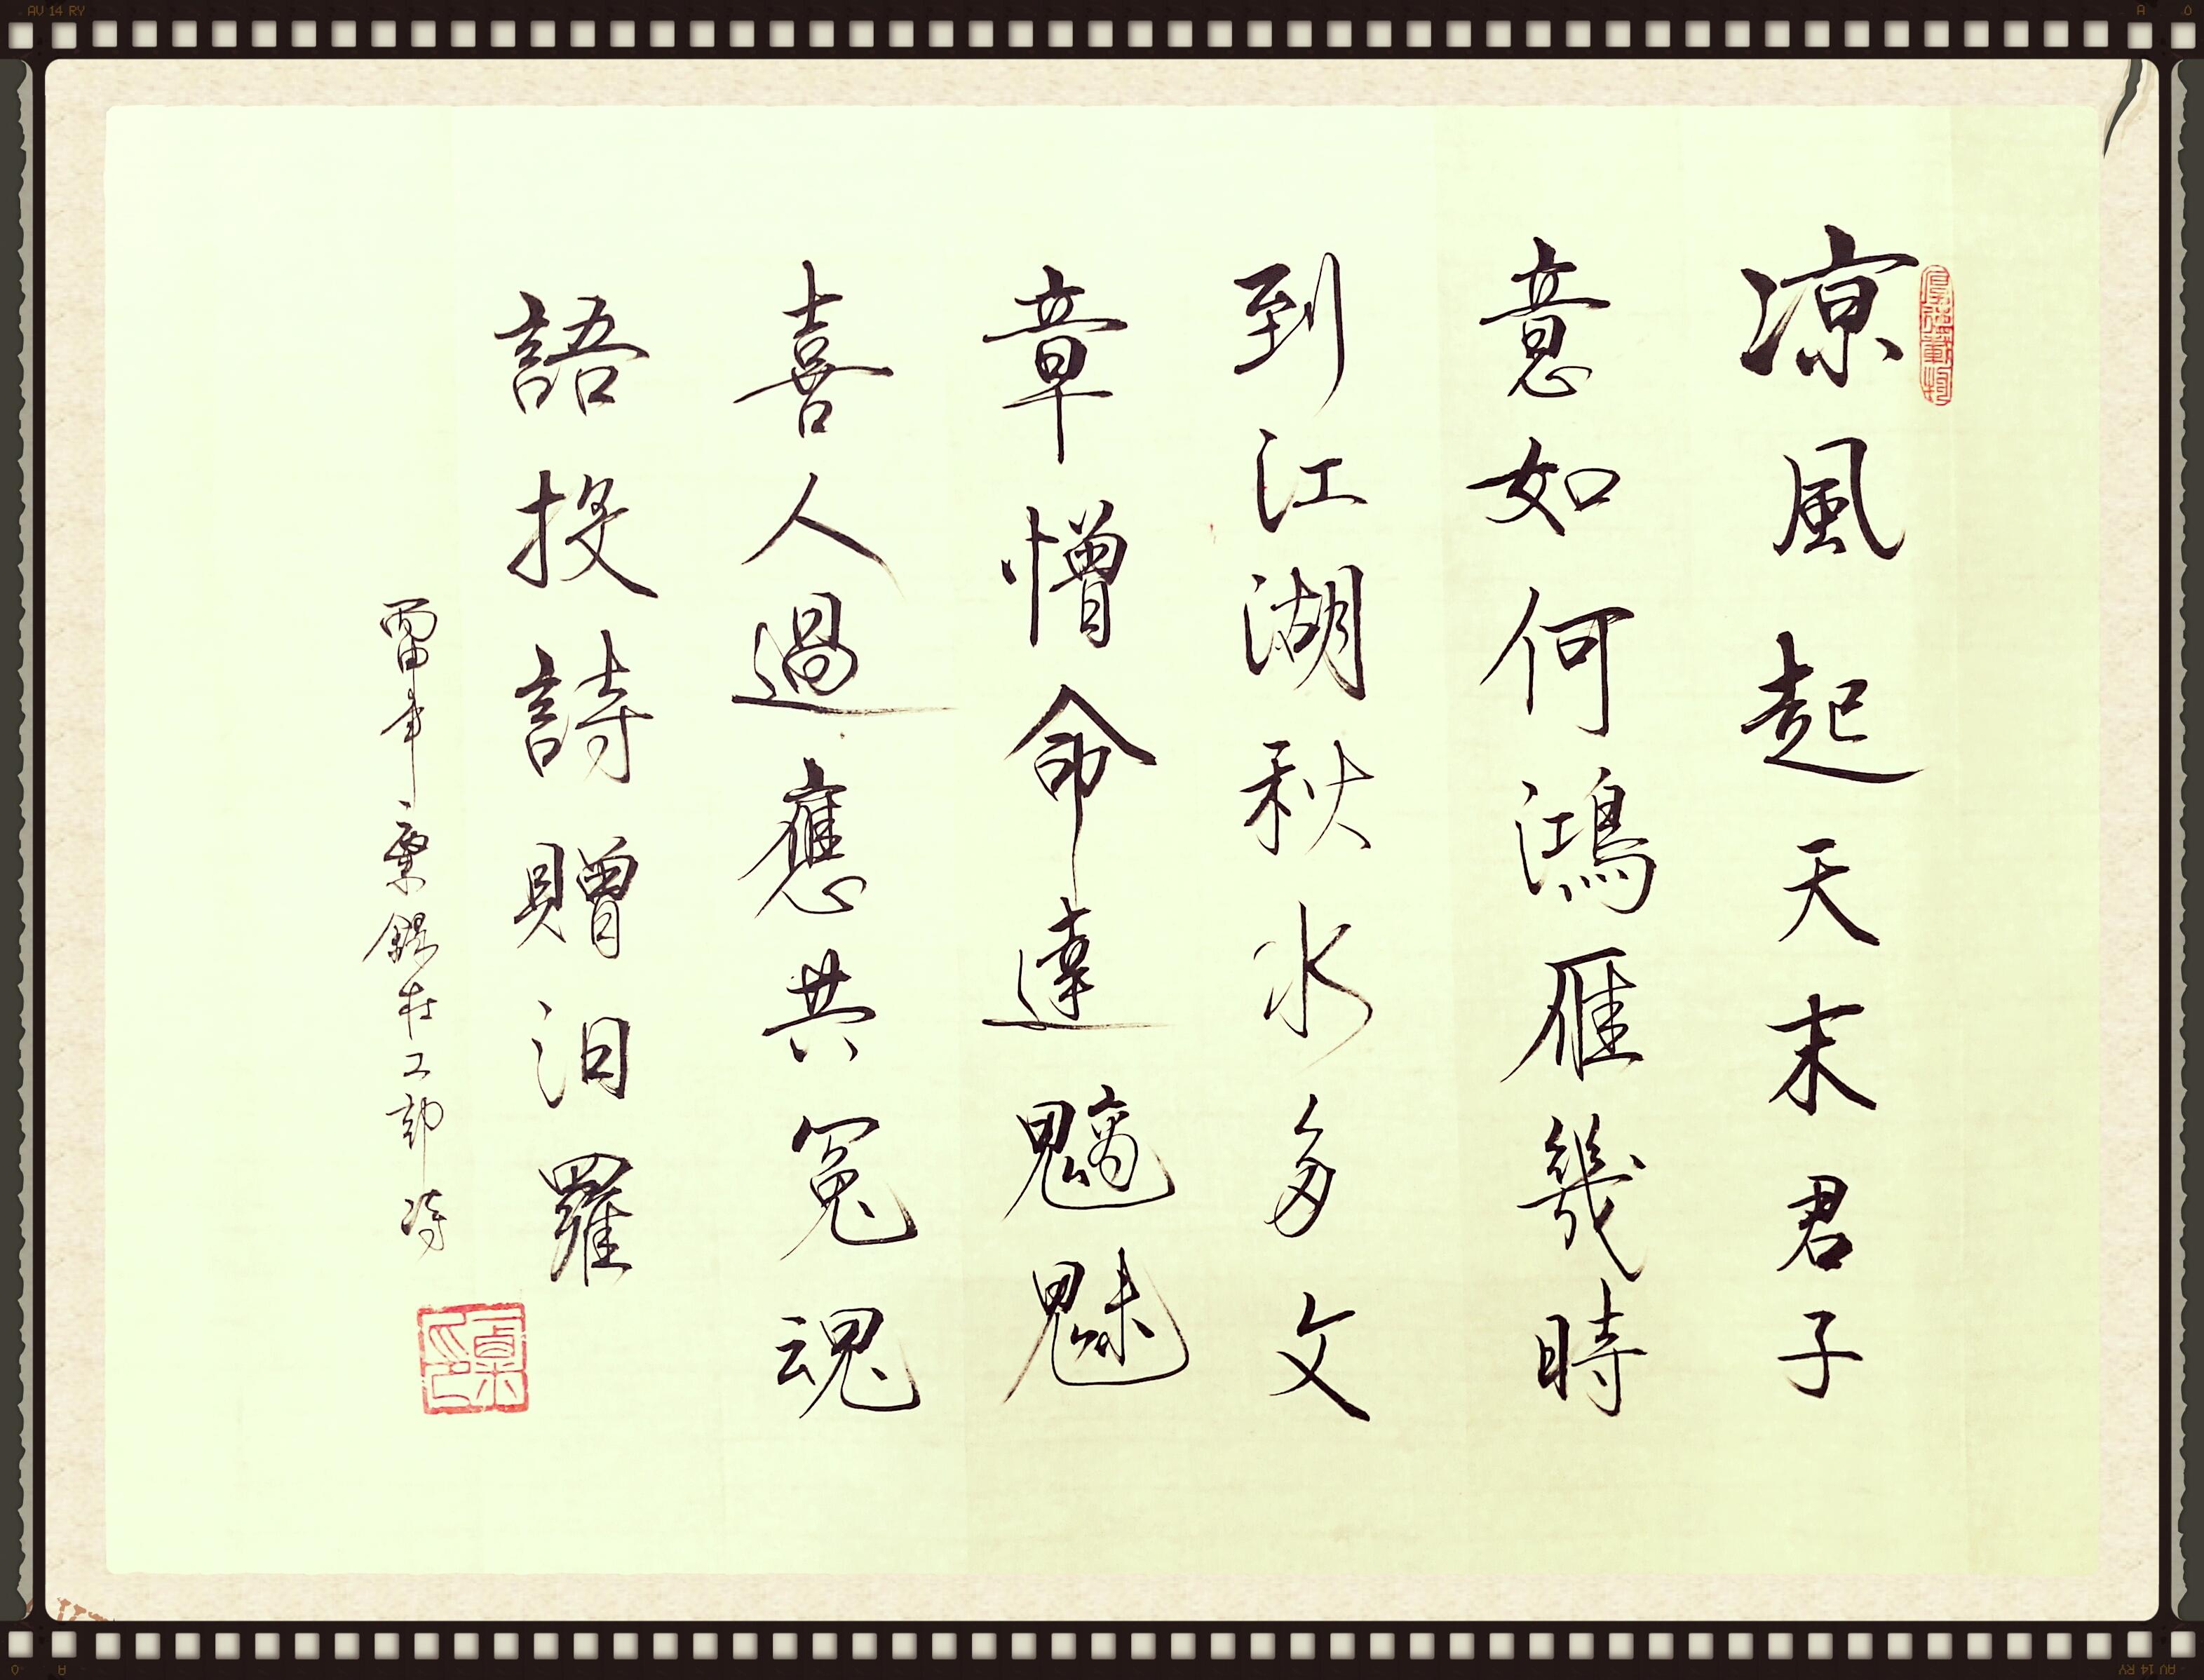 厚德載物
凉風起天末君子
意如何鴻雁幾時
到江湖秋水多文
章憎命達魑魅
喜人過應共冤魂
語投詩贈汨羅
丙申年錄杜工部詩